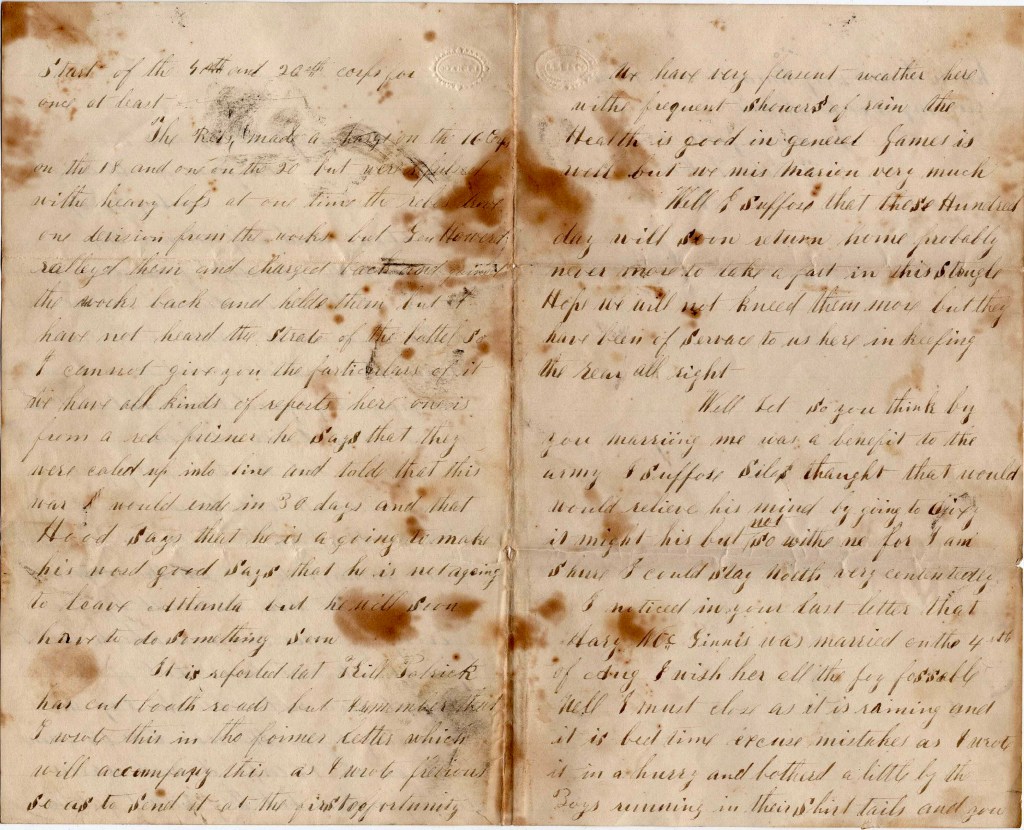 Start of the and 20th corps for
one at least
The Rebs made a charge on the 16 Corps
on the 18 and one on the 20 but were repulsed
withe heavy loss at one time the rebs have
one devision from the works but Gen Howerd
ralleyd them and charged back and
the works back and holds them but I
have not heard the strate of the battel so
I can not give you the particulars of it
We have all kinds of reports here one is
from a reb prisner he says that they
were caled up into line and tolds that this
war would ends in 30 days and that
Hood says that he is a going to make
his word good says that he is not ageing
to leave Atlanta but he will soon
have to do something soon
It is reported tat Kill Patrick
has cut booth roads but I remember that
I wrote this in the former letter which
will accompany this as I wrote previous
so as to send it at the first opportunity
We have very pleasent weather here
withe frequent showers of rain the
Health is good in general James is
well but we mis Marion very much
Well I suppose that these Hundred
day will soon return home probably
never more to take a part in this stru­gle
Hope we will not kneed them more but they
have been of servace to us here in keeping
the rear all right
Well bet so you think by
you marriing me was a benefit to the
army I suppose Silas thaught that would
would relieve his mind by going to
it might his but not so withe me for I am
shure I could stay North very contentedly
I noticed in your last letter that
Mary Mc Ginnis was married on the 4th
of Aug I wish her all the joy possable
Well I must close as it is raining and
it is bed time excuse mistakes as I wrote
it in a hurry and botherd a little by th
Boys running in their shirt tails and you